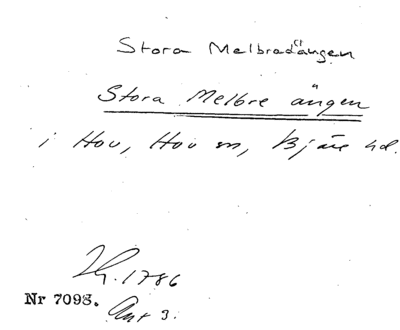 Stora Melbradängen
Stora Melbre ängen
i Hov, Hov sn, Bjäre hd.
1786
Nr 7098.
Akt 3.